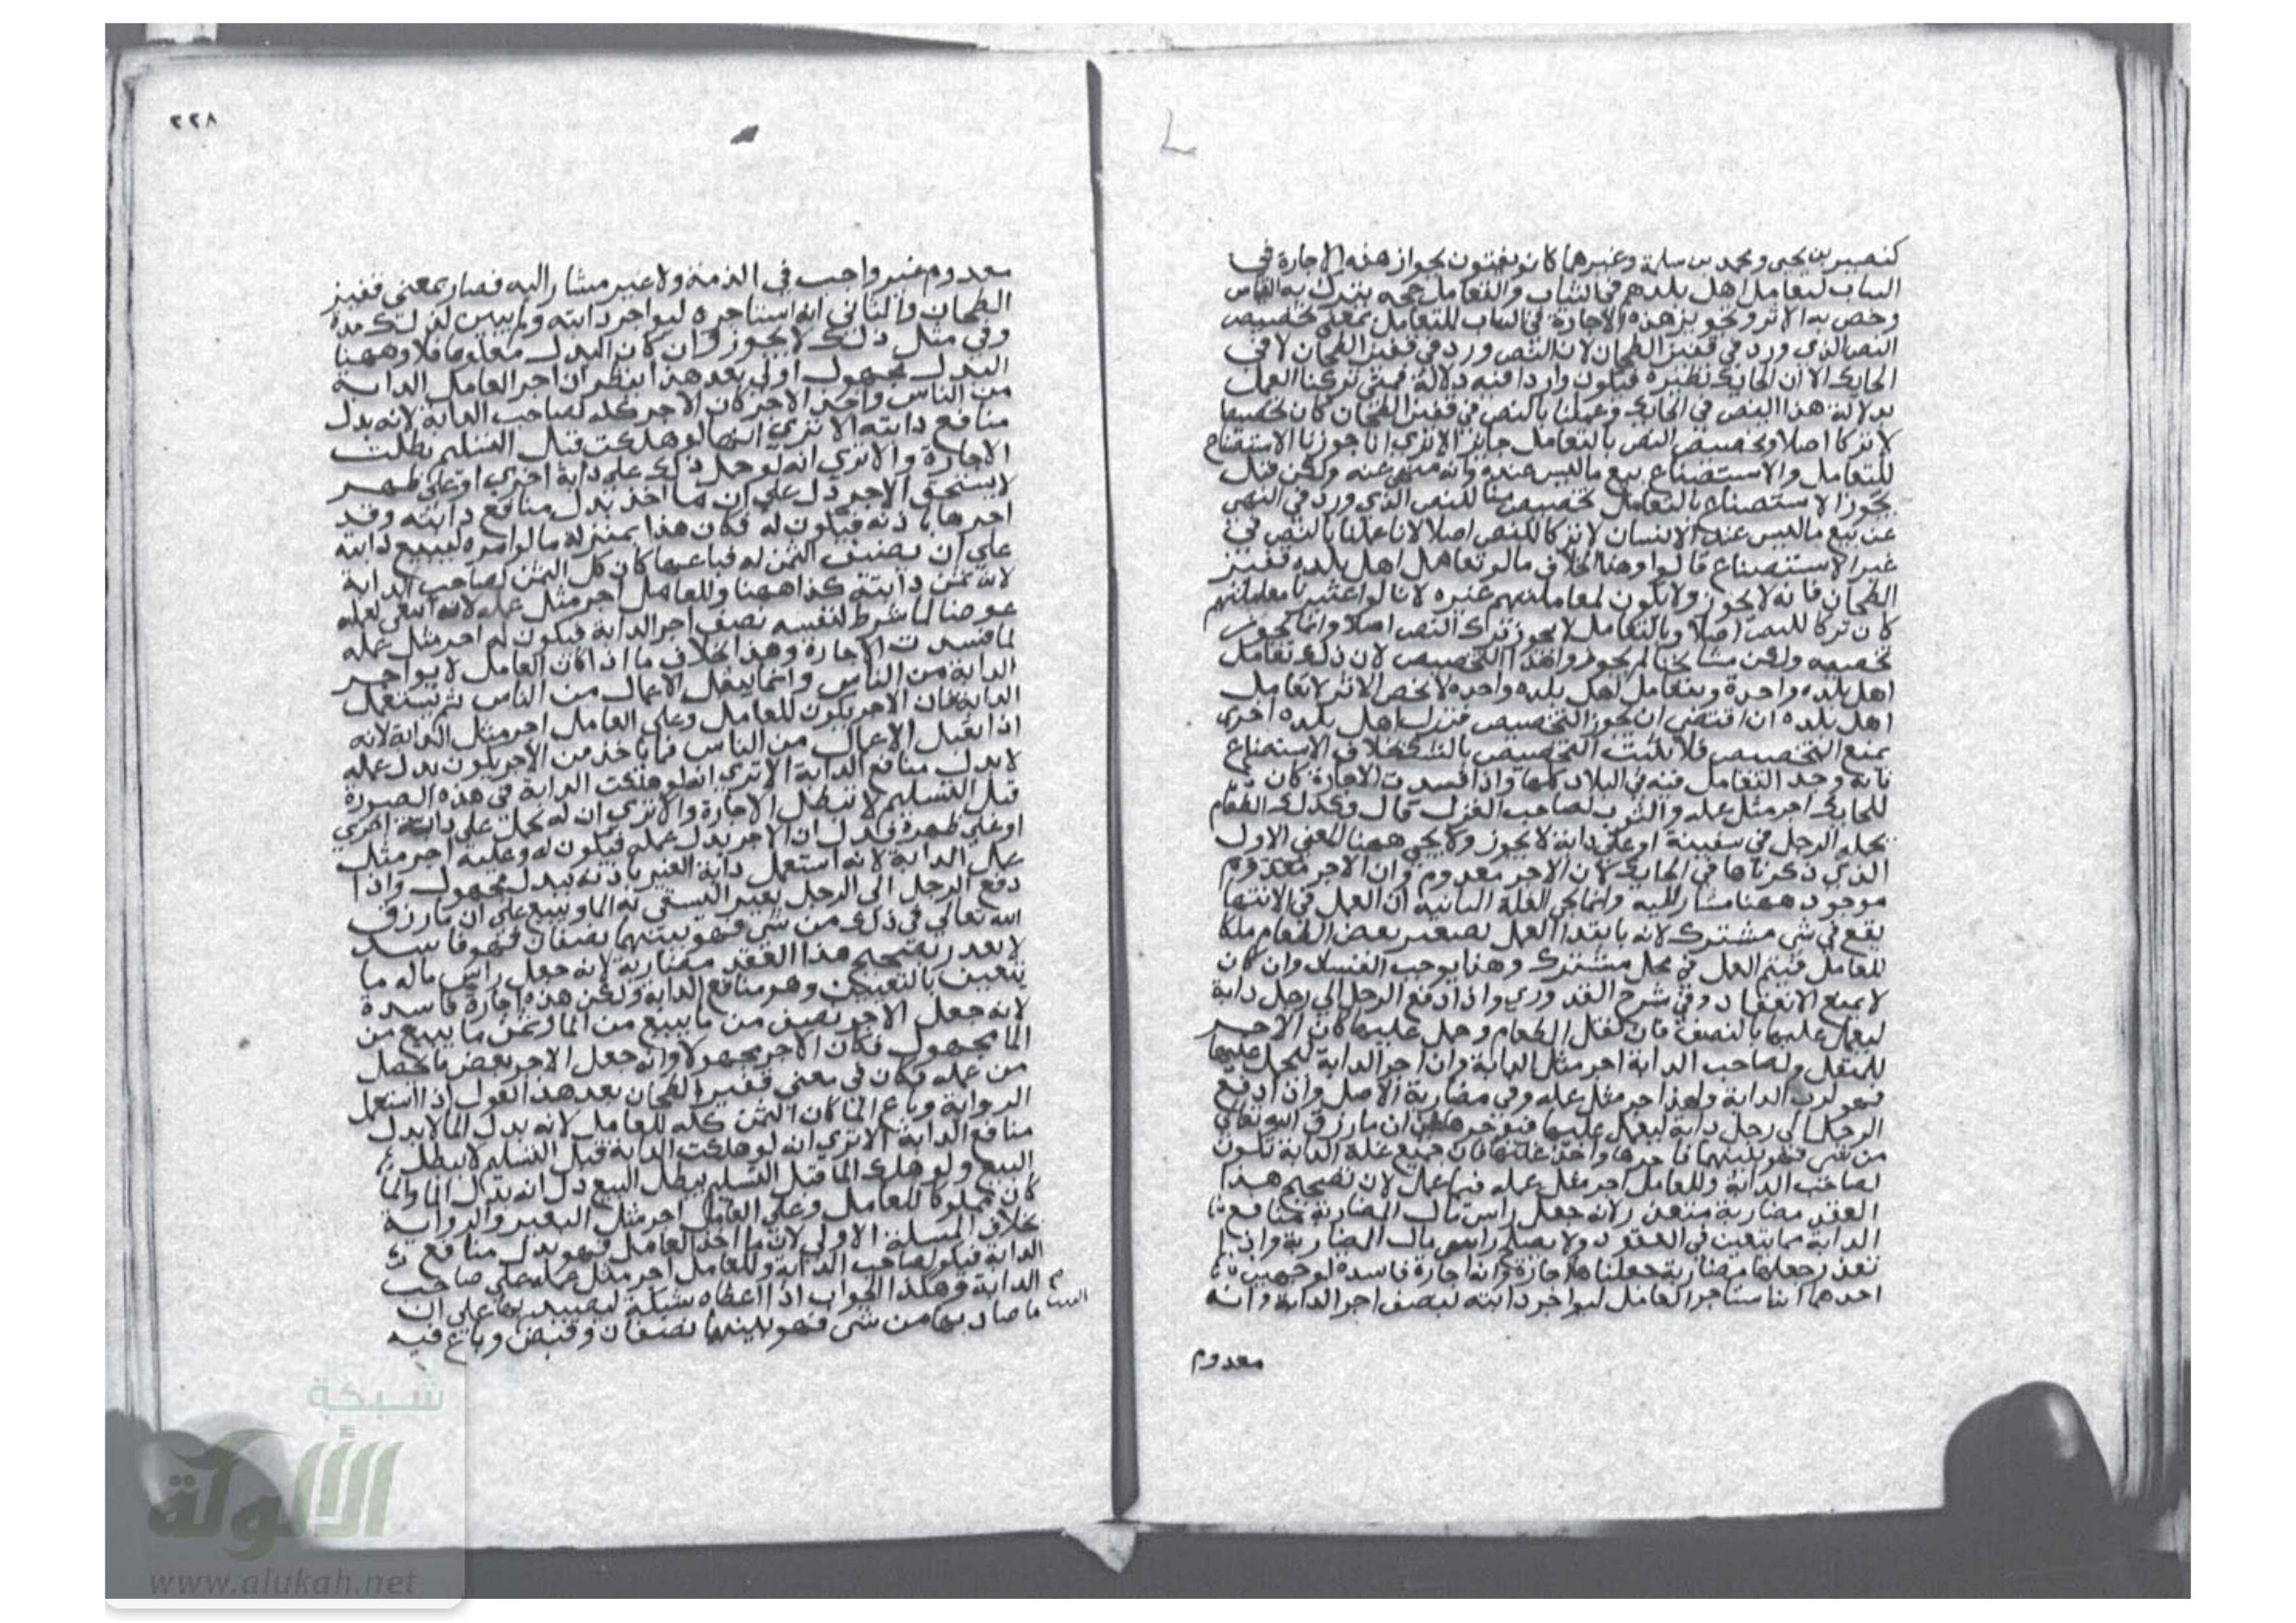 كنصير بن يحيى ومحمد بن سلمة وغيرهما كانوا يفتون بجواز هذه الاجارة في
الثياب لتعامل اهل بلدهم في الثياب والتعامل حجه يترك به القياس
وخص به الاثر وتجويز هذه الاجارة في الثياب للتعامل بمعنى تخصيص
النص الذي ورد في قفيز الطحان لان النص ورد في قفيز الطحان لا في
الحايك الا ان الحايك نظيره فيكون واردا فيه دلالة فمتى تركنا العمل
بدلالة هذا النص في الحايك وعملنا بالنص في قفيز الطحان كان تخصيصا
لا تركا اصلا وتخصيص النص بالتعامل جايز الا ترى انا جوزنا الاستصناع
للتعامل والاستصناع بيع ما ليس عنده وانه منهي عنه ولكن قيل
بجوز الاستصناع بالتعامل تخصيص منا للنص الذي ورد في النهي
عن بيع ما ليس عند الانسان لا تركا للنص اصلا لانا علمنا بالنص في
غير الاستصناع قالوا وهذا بخلاف ما لو تعامل اهل بلده قفيز
الطحان فانه لا يجوز ولا يكون لمعاملتهم عبره لانا لو اعتبرنا معاملتهم
كان تركا للنص اصلا وبالتعامل لا يجوز ترك النص اصلا وانما يجوز
تخصيصه ولكن مشايخنا لم يجوزوا هذا التخصيص لان ذلك تعامل
اهل بلده واحدة وبتعامل اهل بلده واحده لا يخص الاثر لا تعامل
اهل بلده ان اقتضى ان يجوز التخصيص فترك اهل بلده اخرى
يمنع التخصيص فلا يثبت التخصيص بالشك بخلاف الاستصناع
فانه وجد التعامل فيه في البلاد كلها واذا فسدت الاجارة كان
للحايك اجر مثل عمله والثوب لصاحب الغزل قال وكذلك الطعام
يحمله الرجل في سفينة او على دابة لا يجوز ولا يجي ههنا المعنى الاول
الذي ذكرناها في الحايك لان الاجر معدوم وان الاجر معدوم
موجود ههنا مشار اليه وانما يجي العلة الثانيه ان العمل في الانتها
يقع في شي مشترك لانه بابتدا العمل يصير بعض الطعام ملكا
للعامل فيتم العمل في محل مشترك وهذا يوجب الفساد وان كان
لا يمنع الانعقاد وفي شرح القدوري واذا دفع الرجل الى رجل دابة
ليعمل عليها بالنصف فان تقبل الطعام وحمل عليها كان الاجر
للمتقبل ولصاحب الدابة اجر مثل الدابة وان اجر الدابة ليحمل عليها
فهو لرب الدابة ولهذا اجر مثل عمله وفي مضاربة الاصل واذا دفع
الرجل الى رجل دابة ليعمل عليها فيؤاجرها على ان ما رزق الله تعالى
من شي فهو بينهما فاجرها واخذ غلتها فان جميع غلة الدابة تكون
لصاحب الدابة وللعامل اجر مثل عمله فيما عمل لان تصحيح هذا
العقد مضاربة متعذر لانه جعل راس مال المضاربة منافع
الدابة مما يتعين في العقود ولا يصلح راس مال المضاربة واذا
تعذر جعلها مضاربة جعلناها اجارة وانه اجارة فاسدة لوجهين
احدهما انه استاجر العامل ليواجر دابته بنصف اجر الدابة وانه
معدوم
٢٢٨
معدوم غير واجب في الذمة ولا غير مشار اليه فصار بمعنى قفيز
الطحان والثاني انه استاجره ليواجر دابته ولم يبين لذلك مدة
وفي مثل ذلك لا يجوز وان كان البدل معلوما فلا وههنا
البدل مجهول اولى بعد هذا ينظر ان اجر العامل الدابة
من الناس واخذ الاجر كان الاجر كله لصاحب الدابة لانه بدل
منافع دابته الا ترى انها لو هلكت قبل التسليم بطلت
الاجارة والا ترى انه لو حمل ذلك على دابة اخرى او على ظهر
لا يستحق الاجر دل على ان ما اخذ بدل منافع دابته وقد
اجرها باذنه فيكون له فكان هذا بمنزلة ما لو امره ليبيع دابته
على ان نصف الثمن له فباعها كان كل الثمن لصاحب الدابة
لانه ثمن دابته كذا ههنا وللعامل اجر مثل عمله لانه ابتغى لعمله
عوضا لما شرط لنفسه نصف اجر الدابة فيكون له اجر مثل عمله
لما فسدت الاجارة وهذا بخلاف ما اذا كان العامل لا يواجر
الدابة من الناس وانما يتقبل الاعمال من الناس ثم يستعمل
الدابة فان الاجر يكون للعامل وعلى العامل اجر مثل الدابة لانه
اذا تقبل الاعمال من الناس فما ياخذ من الاجر يكون بدل عمله
لا بدل منافع الدابة الا ترى انه لو هلكت الدابة في هذه الصورة
قبل التسليم لا تبطل الاجارة والا ترى ان له يحمل على دابته اخرى
او على ظهره فدل ان الاجر بدل عمله فيكون له وعليه اجر مثل
عمل الدابة لانه استعمل دابة الغير باذنه ببدل مجهول واذا
دفع الرجل الى الرجل بعير اليستقي به الما ويبيع على ان ما رزق
الله تعالى في ذلك من شي فهو بينهما نصفان فهو فاسد
لا يعدر تصحيح هذا العقد مضاربة لانه جعل راس ماله ما
يتعين بالتعيين وهو منافع الدابة ولكن هذه اجارة فاسدة
لانه جعل الاجر نصف من ما يبيع من الما وثمن ما يبيع من
الما مجهول فكان الاجر مجهولا وانه جعل الاجر بعض ما يحصل
من عمله فكان في معنى قفيز الطحان بعد هذا القول اذا استعمل
الرواية وباع الما كان الثمن كله للعامل لانه بدل الما لا بدل
منافع الدابة الا ترى انه لو هلكت الدابة قبل التسليم لا يبطل
البيع ولو هلك الما قبل التسليم يبطل البيع دل انه بدل الما والما
كان مملوكا للعامل وعلى العامل اجر مثل البعير والرواية
بخلاف المسئلة الاولى لان ما اخذ العامل فهو بدل منافع
الدابة فيكو لصاحب الدابة وللعامل اجر مثل عمله على صاحب
الدابة وهكذا الجواب اذا اعطاه شبكة ليصيد بها على ان
ما صاد بها من شي فهو بينهما نصفان وقبض وباع فيه
شبكة
الألوكة
www.alukah.net